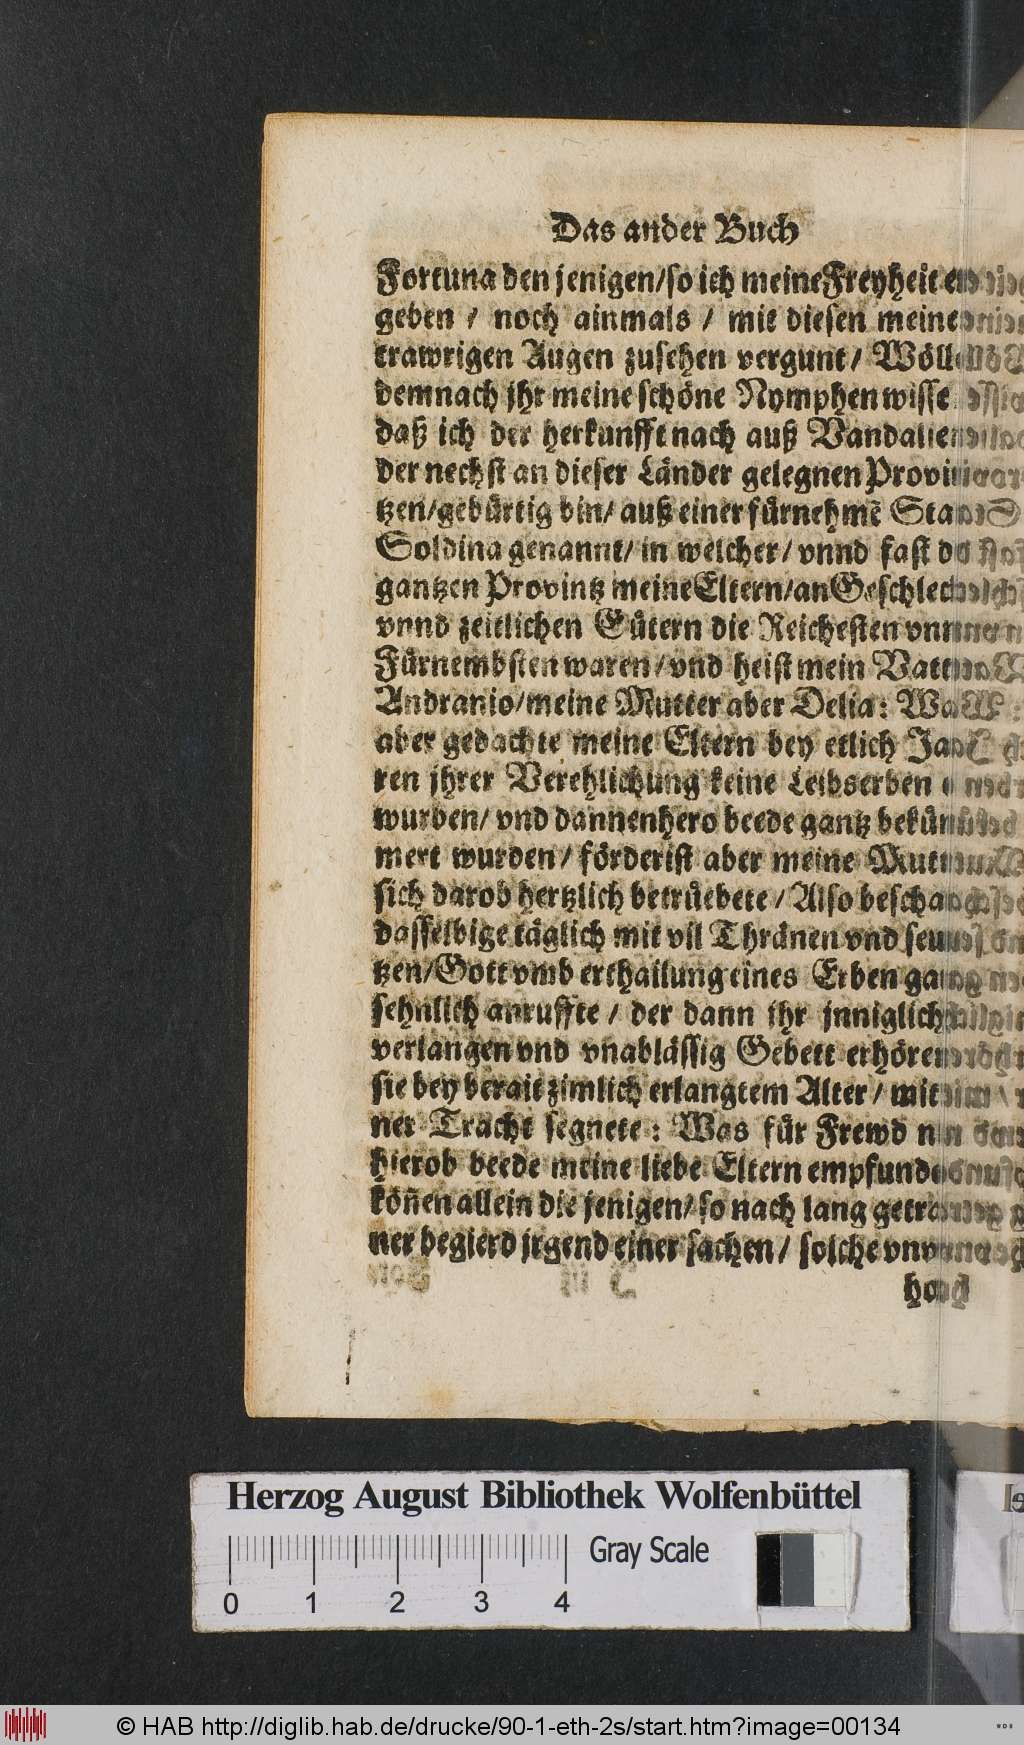 Das ander Buch
Fortuna den jenigen/so ich meine Freyheit
geben / noch ainmals / mit diesen meine
trawrigen Augen zusehen vergunt/ Wöll
demnach jhr meine schöne Nymphen wisse
daß ich der herkunfft nach auß Vandalien
der nechst an dieser Länder gelegnen Provin
tzen/gebürtig bin/ auß einer fürnehmē Sta
Soldina genannt/ in welcher/ vnnd fast
gantzen Provintz meine Eltern/an Geschlech
vnnd zeitlichen Gütern die Reichesten vnn
Fürnembsten waren/vnd heist mein Vatt
Andranio/meine Mutter aber Delia: Wa
aber gedachte meine Eltern bey etlich Ja
ren jhrer Verehlichung keine Leibserben
wurben/ vnd dannenhero beede gantz bekü
mert wurden/ förderist aber meine Mut
sich darob hertzlich betrüebete/ Also bescha
dasselbige täglich mit vil Thränen vnd seu
tzen/Gott vmb erthailung eines Erben ga
sehnlich anruffte / der dann jhr jnniglich
verlangen vnd vnablässig Gebett erhöre
sie bey berait zimlich erlangtem Alter / mit
ner Tracht segnete: Was für Frewd n
hierob beede meine liebe Eltern empfund
köñen allein die jenigen/ so nach lang getra
ner begierd jrgend einer sachen/ solche vnv
Herzog August Bibliothek Wolfenbüttel
Gray Scale
0 1 2 3 4
© HAB http://diglib.hab.de/drucke/90-1-eth-2s/start.htm?image=00134